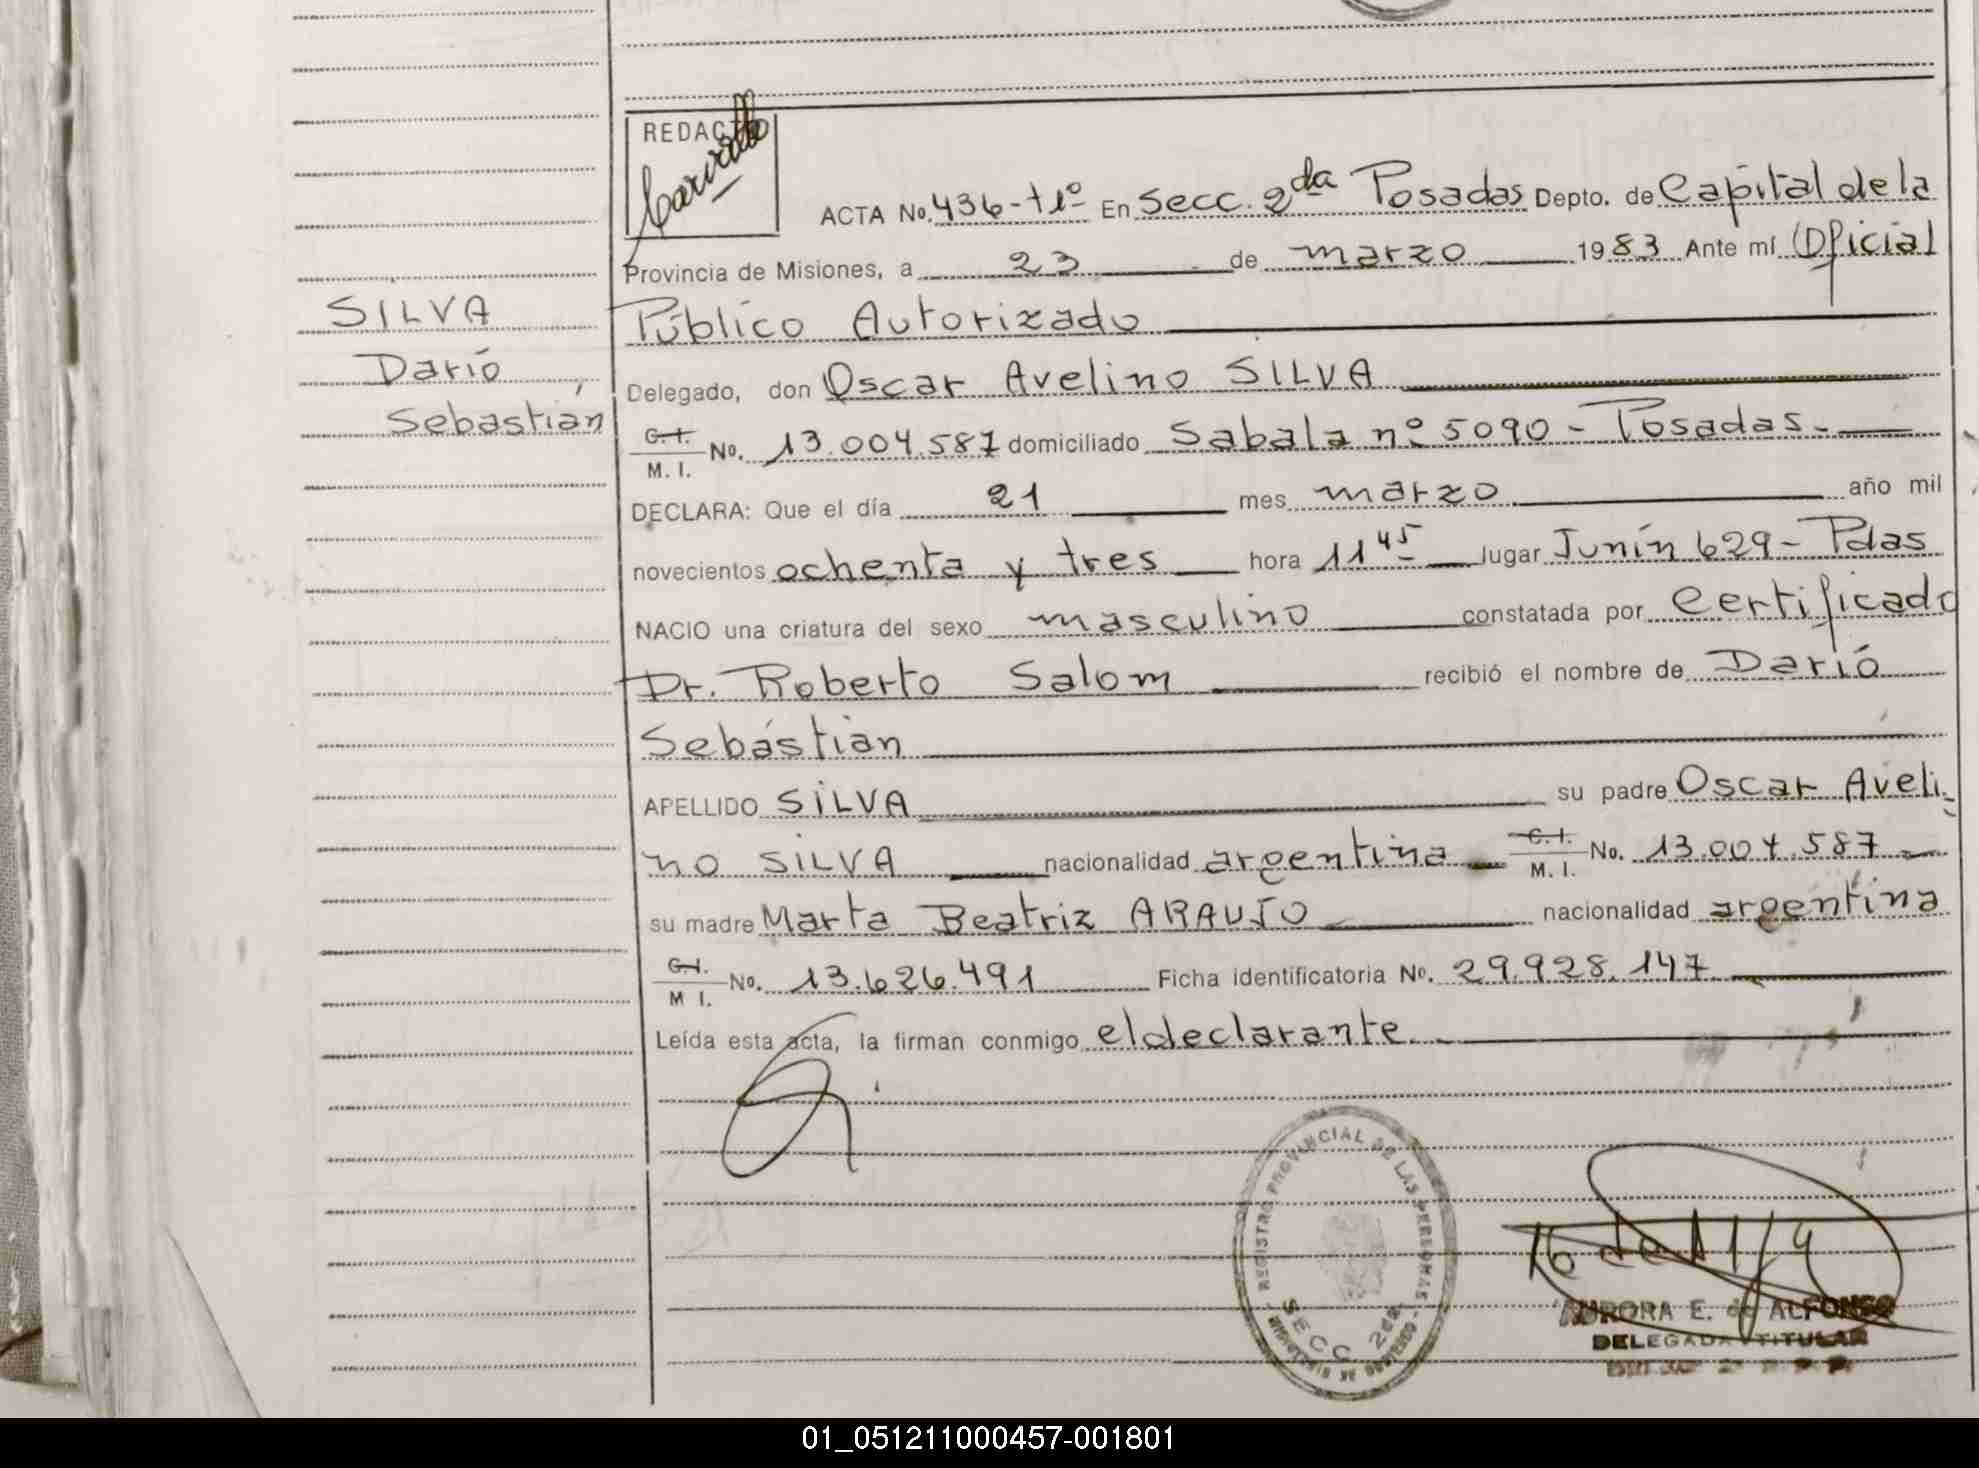 REDACTO
ACTA No. 436-t1º En Secc. 2da Posadas Depto. de Capital de la
Provincia de Misiones, a 23 de marzo 1983 Ante mí Oficial
SILVA
Público Autorizado
Darió
Delegado, don Oscar Avelino SILVA
Sebastián
C. I. M. I. No. 13.004.587 domiciliado Sabala nº 5090 - Posadas.-
DECLARA: Que el día 21 mes marzo año mil
novecientos ochenta y tres hora 11 45 lugar Junín 629 - Pdas
NACIO una criatura del sexo masculino constatada por Certificado
Dr. Roberto Salom recibió el nombre de Darió
Sebástian
APELLIDO SILVA su padre Oscar Aveli-
no SILVA nacionalidad argentina C. I. M. I. No. 13.004.587
su madre Marta Beatriz ARAUJO nacionalidad argentina
C. I. M I. No. 13.626.491 Ficha identificatoria No. 29.928.147
Leída esta acta, la firman conmigo el declarante.
REGISTRO PROVINCIAL DE LAS PERSONAS
SECC 2da
MINISTERIO DE GOBIERNO
AURORA E. de ALFONSO
DELEGADA TITULAR
01_051211000457-001801